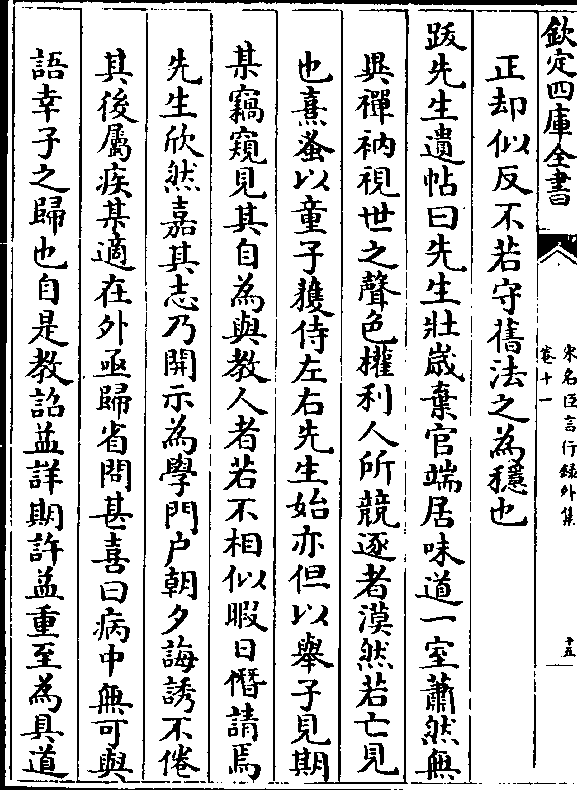 欽定四庫全書
宋名臣言行録外集
卷十一
十五
正却似反不若守舊法之為穩也
跋先生遺帖曰先生壯嵗棄官端居味道一室蕭然無
異禪衲視世之聲色權利人所競逐者漠然若亡見
也熹蚤以童子獲侍左右先生始亦但以舉子見期
某竊窺見其自為與教人者若不相似暇日僭請焉
先生欣然嘉其志乃開示為學門户朝夕誨誘不倦
其後屬疾某適在外亟歸省問甚喜曰病中無可與
語幸子之歸也自是教詔益詳期許益重至為具道